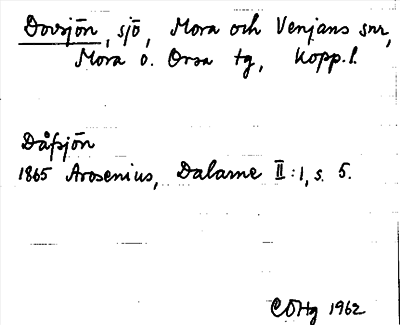 Dovsjön, sjö, Mora och Venjans snr,
Mora o. Orsa tg, Kopp.l.
Dåfsjön
1865 Arosenius, Dalarne II:1, s. 5.
COHg 1962